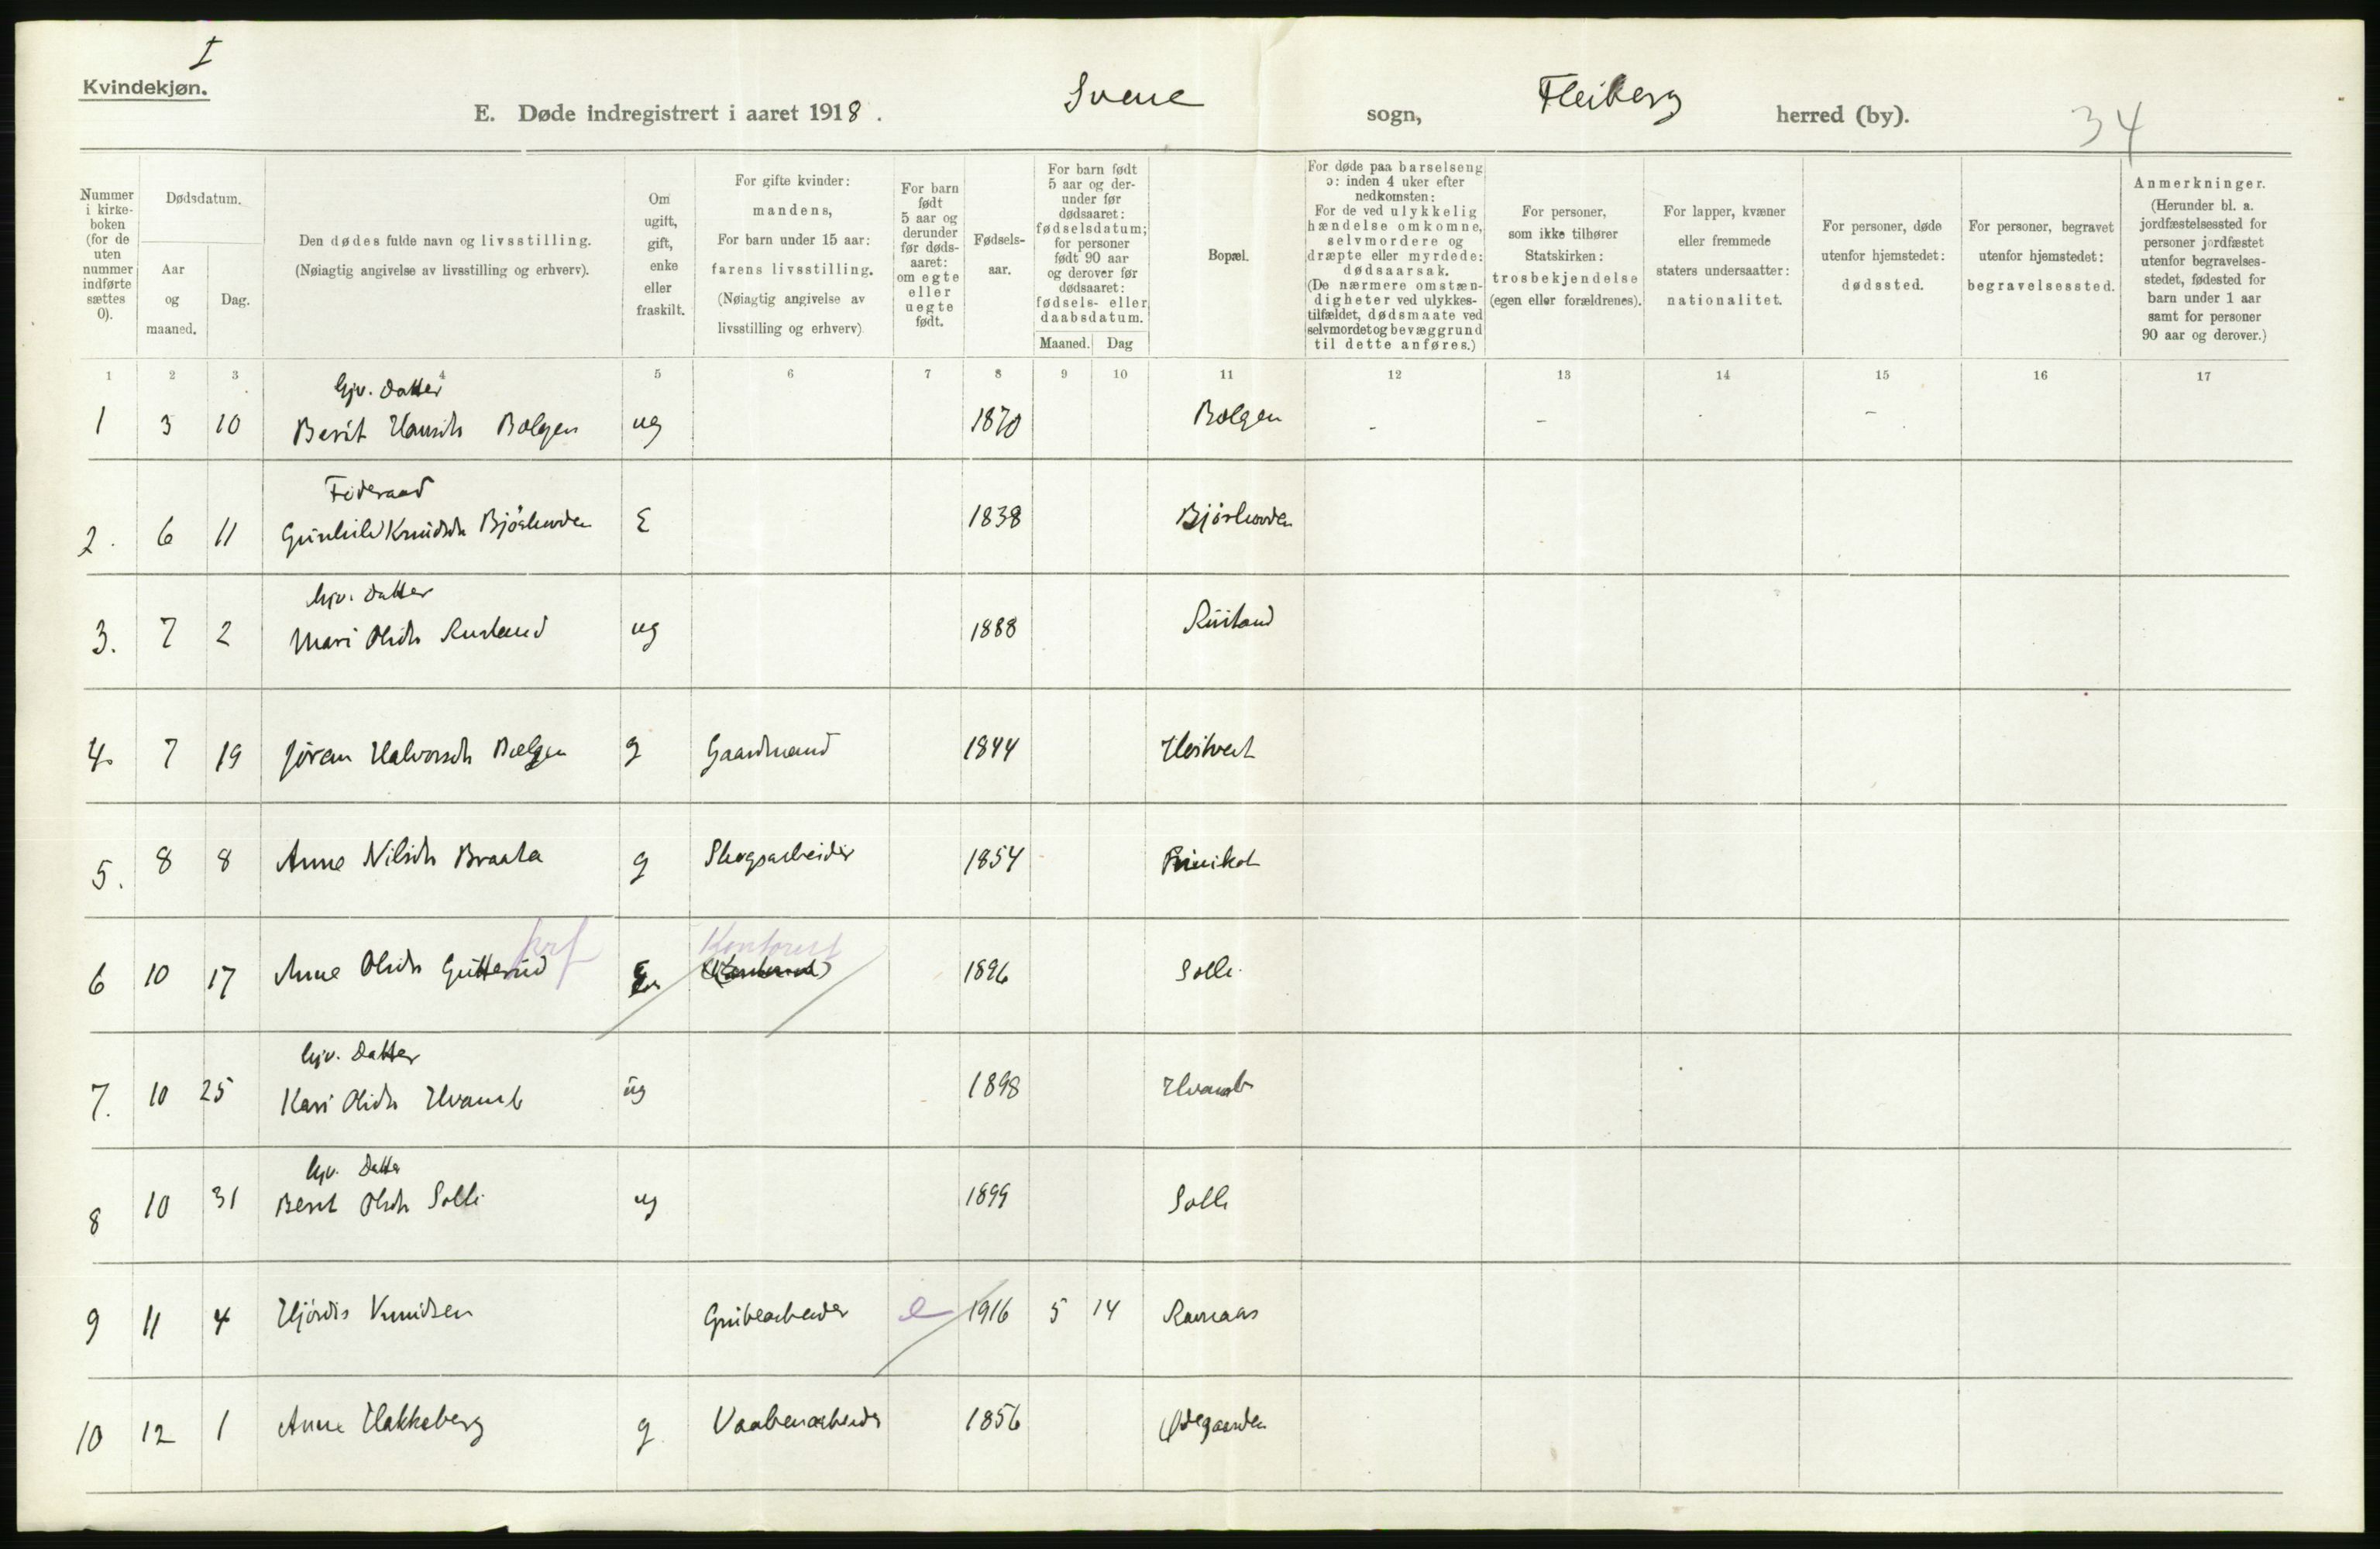 I
Kvindekjøn.
E. Døde indregistrert i aaret 1918. Svene sogn, Fleiberg herred (by). 34
Nummer i kirke- boken (for de uten nummer indførte sættes 0).
Dødsdatum.
Aar og maaned.
Dag.
Den dødes fulde navn og livsstilling.
(Nøiagtig angivelse av livsstilling og erhverv).
Om ugift, gift, enke eller fraskilt.
For gifte kvinder:
mandens,
For barn under 15 aar:
farens livsstilling.
(Nøiagtig angivelse av
livsstilling og erhverv)
For barn født 5 aar og derunder før døds- aaret: om egte eller uegte født.
Fødsels- aar.
For barn født 5 aar og der- under før dødsaaret: fødselsdatum; for personer født 90 aar og derover før dødsaaret: fødsels- eller daabsdatum.
Maaned. Dag
Bopæl.
For døde paa barselseng
ɔ: inden 4 uker efter
nedkomsten:
For de ved ulykkelig
hændelse omkomne,
selvmordere og
dræpte eller myrdede:
dødsaarsak.
(De nærmere omstæn-
digheter ved ulykkes-
tilfældet, dødsmaate ved
selvmordet og bevæggrund
til dette anføres.)
For personer,
som ikke tilhører
Statskirken:
trosbekjendelse
(egen eller forældrenes).
For lapper, kvæner
eller fremmede
staters undersaatter:
nationalitet.
For personer, døde
utenfor hjemstedet:
dødssted.
For personer, begravet
utenfor hjemstedet:
begravelsessted.
Anmerkninger.
(Herunder bl. a.
jordfæstelsessted for
personer jordfæstet
utenfor begravelses-
stedet, fødested for
barn under 1 aar
samt for personer
90 aar og derover.)
1 2 3 4 5 6 7 8 9 10 11 12 13 14 15 16 17
hjv. Datter
1 3 10 Berit Hansdtr Bolgen ug 1870 Bolgen - - -
Føderaad
2. 6 11 Gunhild Knudsdtr E 1838
hjv. Datter
3. 7 2 Mari Olsdtr Rusland ug 1888
4. 7 19 Jøran Halvorsdtr Bolgen g Gaardmand 1844
5. 8 8 Anne Nilsdtr Braata g Skogsarbeider 1854
Kontorist
6 10 17 Anne Olsdtr Gutterud 1896 Solli
hjv. Datter
7. 10 25 Kari Olsdtr Hvamb ug 1898 Hvamb
hjv. Datter
8 10 31 Berit Olsdtr Solli ug 1899 Solli
9 11 4 Hjørdis Knudsen Grubearbeider e 1916 5 14 Ravnaas
10 12 1 Anne Hakkaberg g Vaabenarbeider 1856 Ødegaarden